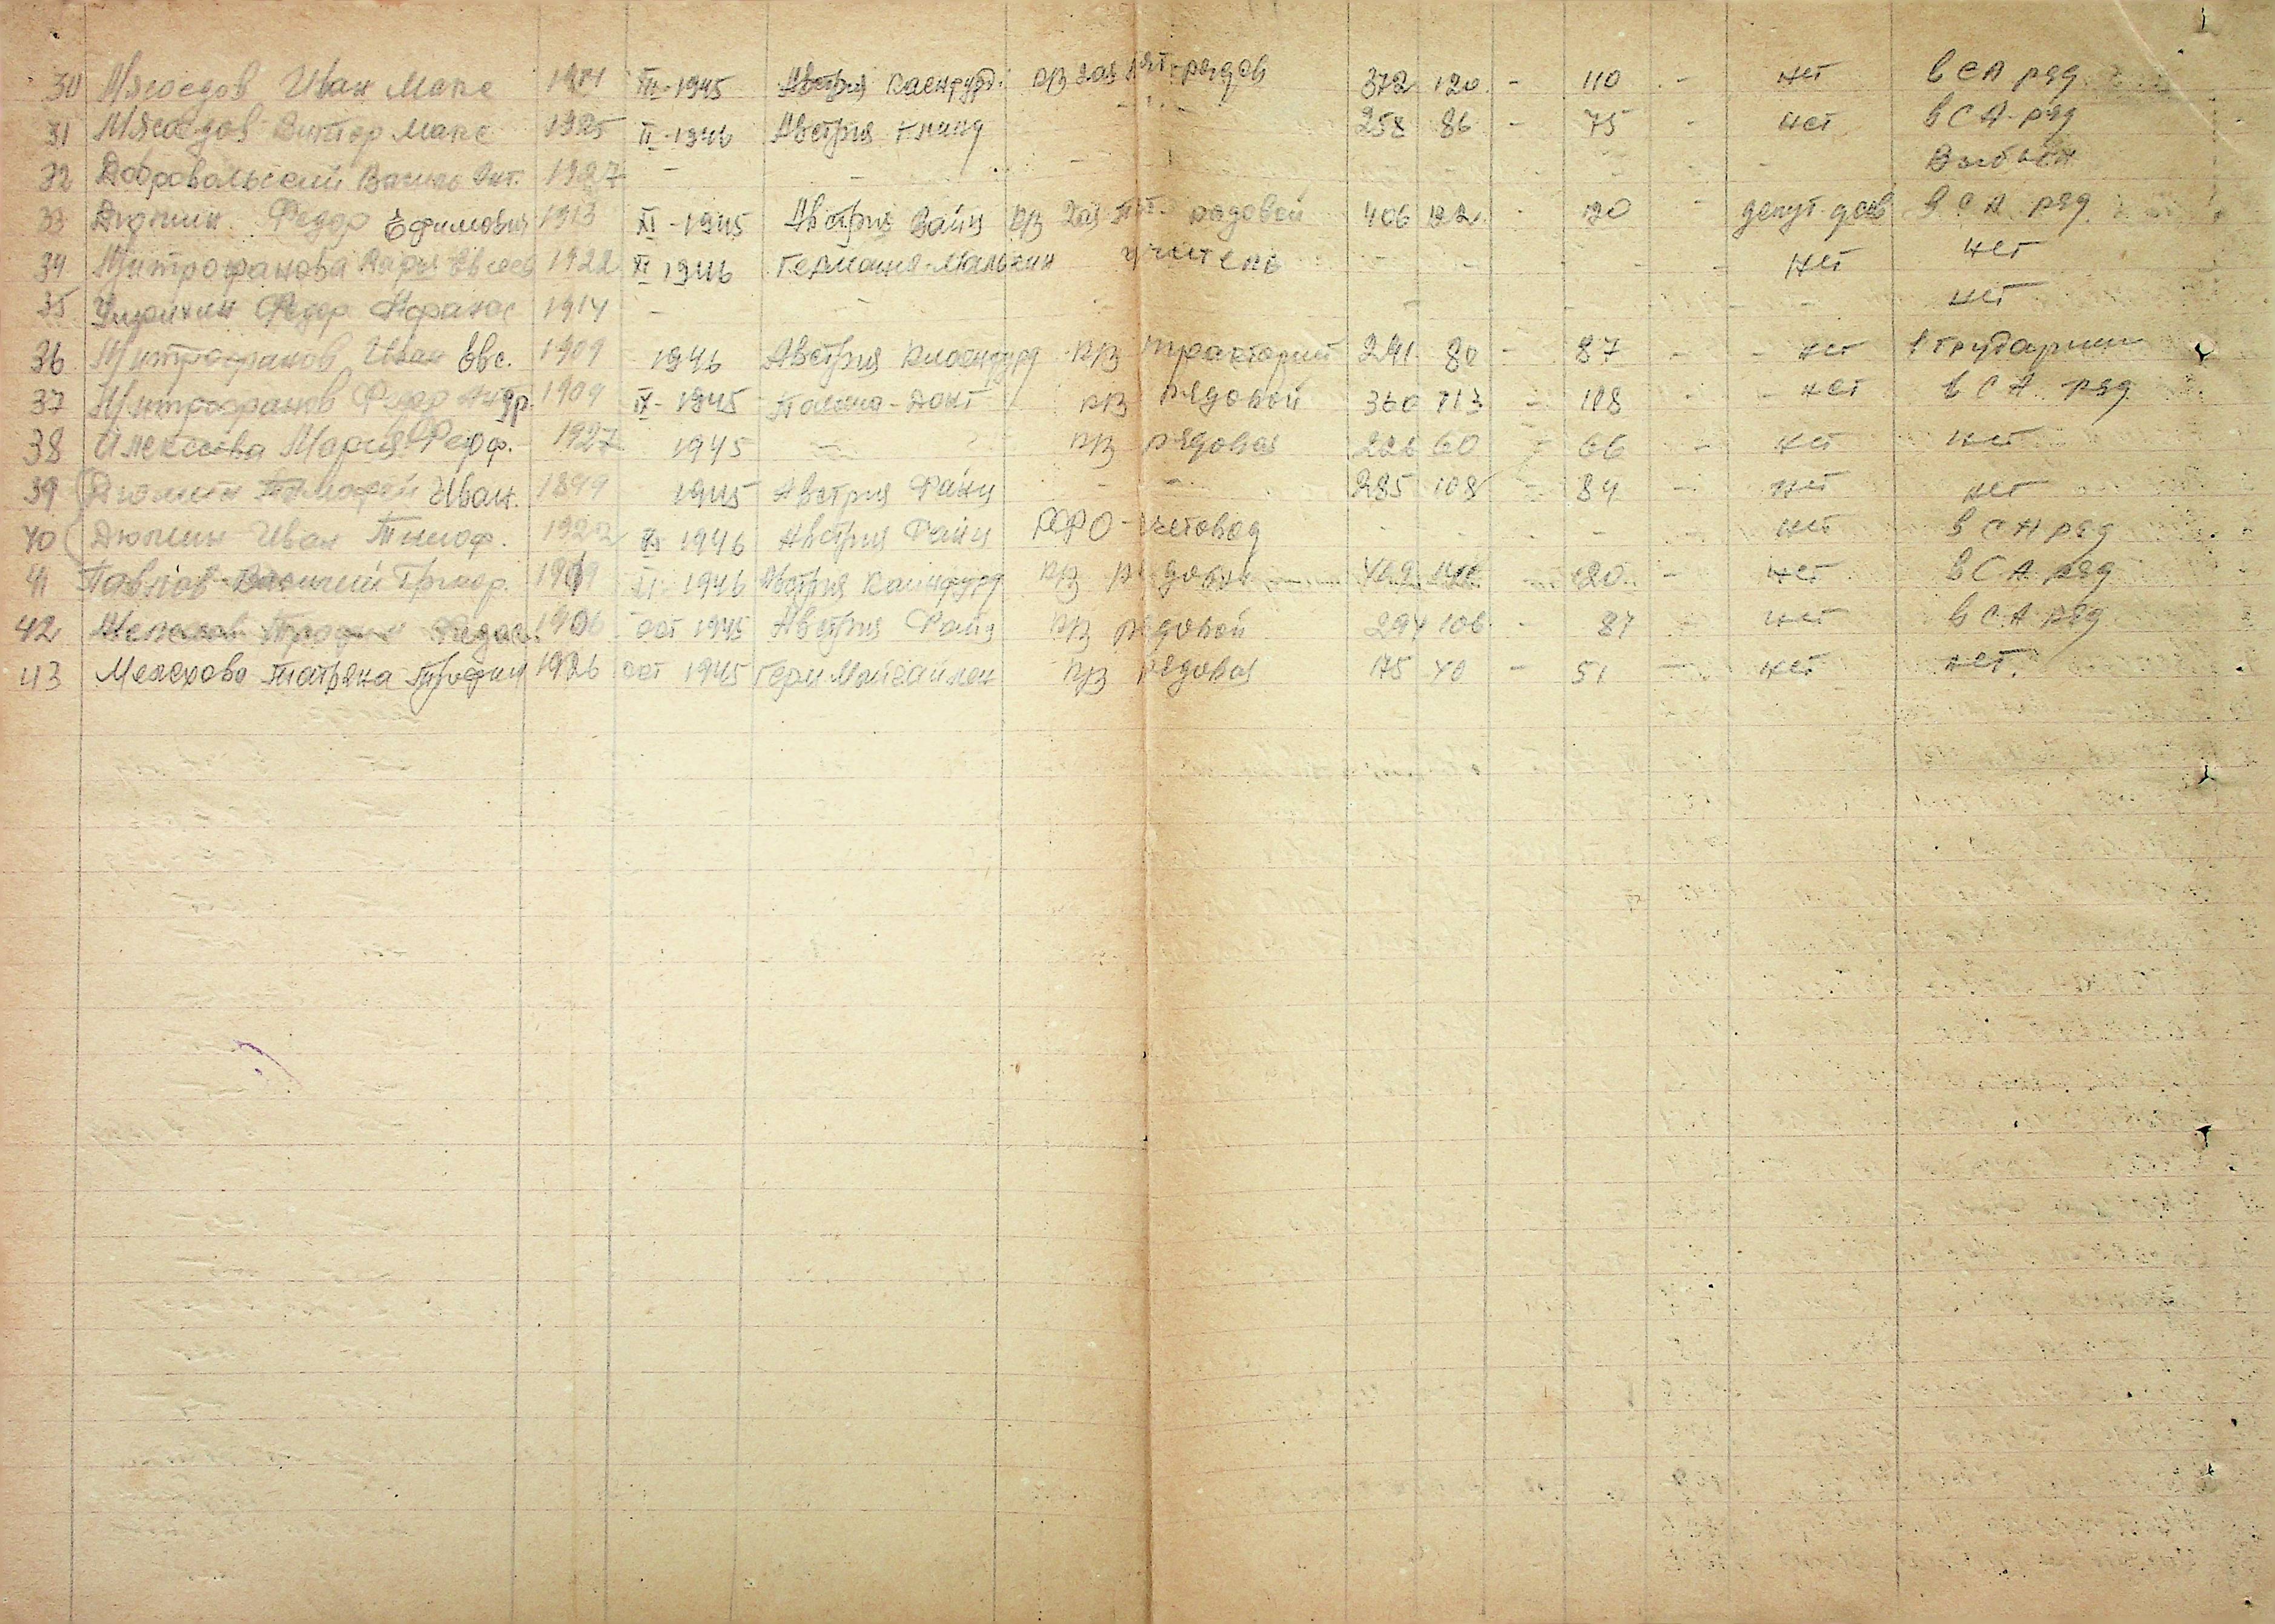 30 Мясоедов Иван Макс 1914 III-1945 Австрия Клентурд. к/з рядов 372 120. - 110 - нет в СА ряд
31 Мясоедов Виктор Макс 1925 II-1946 Австрия - " - 258 86 - 75 - нет в СА ряд
32 Добровольский Васил 1927 - - - - - - Выбыл
33 Дюпин Федор Ефимович 1913 XI-1945 Австрия к/з рядовой 406 122. - 120 - депут в СА ряд
34 Митрофанова Дарья Евсев 1922 XI 1946 Германия учитель - - - - - нет нет
35 Федор Афанас 1914 - - - - - - - - нет
36 Митрофанов Иван Евс. 1909 1946 Австрия к/з 241 80 - 87 - - нет в трудармии
37 Митрофанов Федор Андр. 1909 IX-1945 к/з рядовой 360 113 - 118 - нет в СА ряд
38 Алексеева Мария 1927 1945 - к/з рядовая 226 60 - 66 - нет нет
39 Дюпин Тимофей Иван. 1899 1945 Австрия - " - 285 108 - 84 - нет нет
40 Дюпин Иван Тимоф. 1922 1946 Австрия РФО - счетовод - - - - - нет в СА ряд
41 Павлов Василий Григор. 1919 XI 1946 Австрия к/з рядовой - 120 - нет в СА ряд
42 Мелехов Трофим Федос. 1906 окт 1945 Австрия к/з рядовой 294 106 - 87 нет в СА ряд
43 Мелехова Татьяна Трофим 1926 окт 1945 Герм к/з рядовая 175 40 - 51 - нет нет.